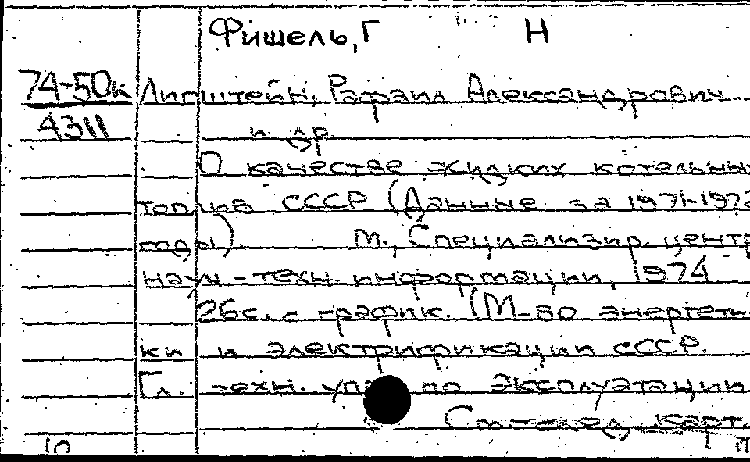 Фишель, Г Н
74-50к Липштейн, Рафаил Александрович
4311 и др.
О качестве жидких котельных
топлив СССР (Данные за 1971-1972
годы). М., Специализир. центр
науч.-техн. информации, 1974
26с. с график. (М-во энергети-
ки и электрификации СССР.
Гл. техн. упр. по эксплуатации
См. след. карт.
10